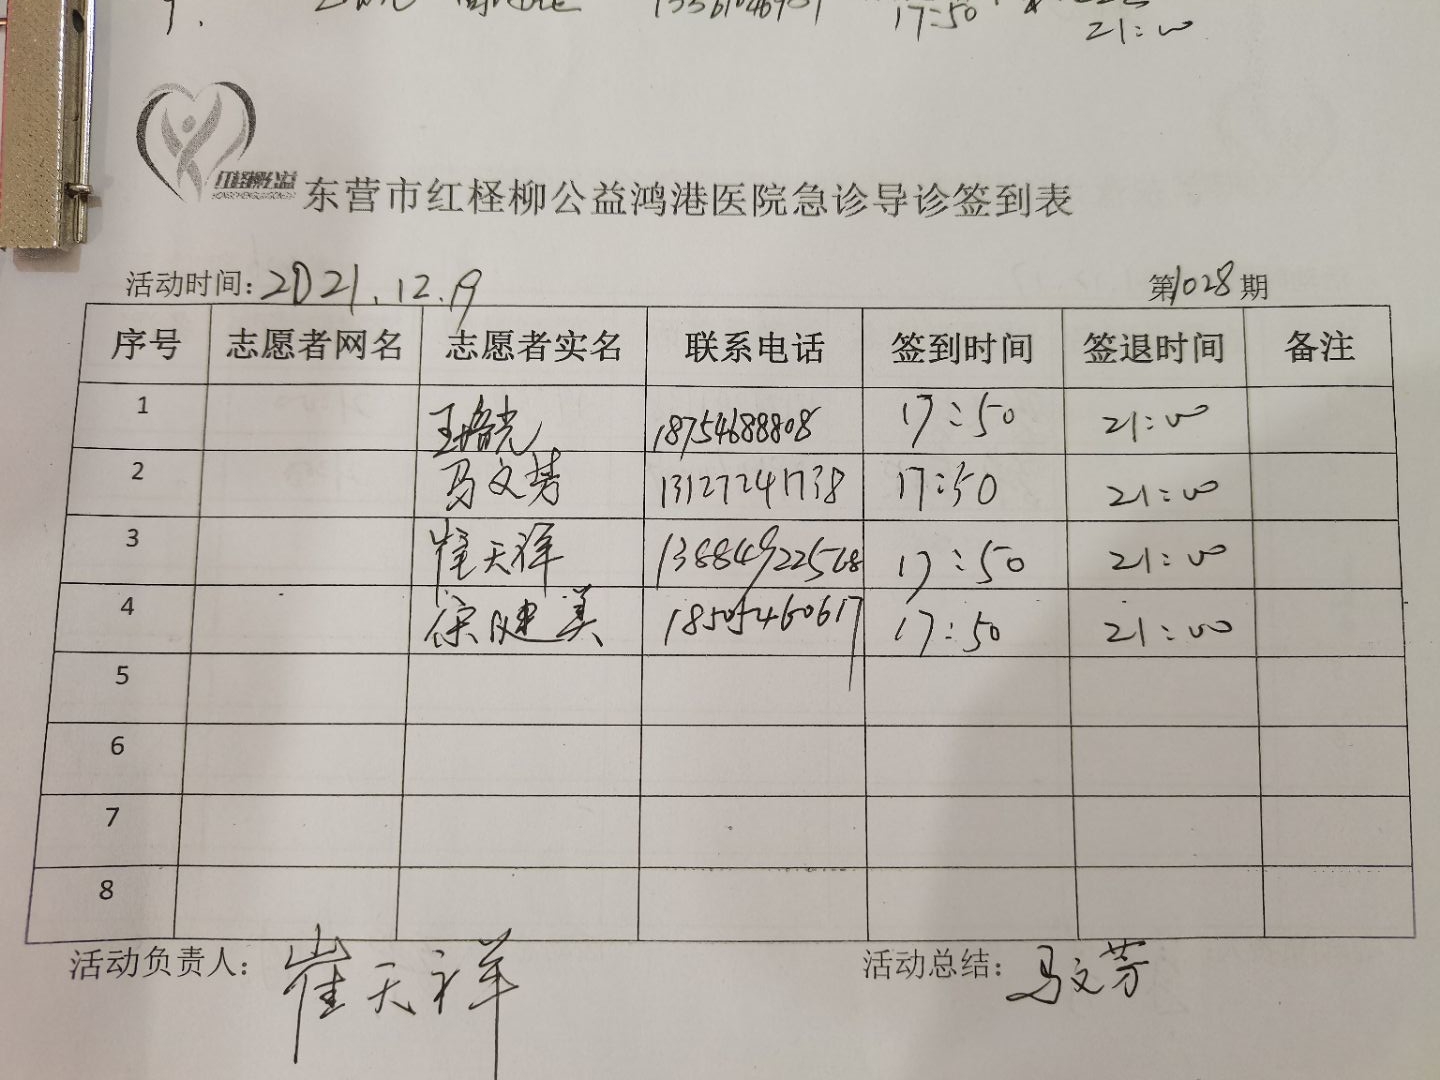 17:50
21:00
东营市红柽柳公益鸿港医院急诊导诊签到表
活动时间: 2021.12.19 第1028期
序号 志愿者网名 志愿者实名 联系电话 签到时间 签退时间 备注
1 18754688808 17:50 21:00
2 马文芳 13127241738 17:50 21:00
3 崔天祥 17:50 21:00
4 徐健美 18505460617 17:50 21:00
5
6
7
8
活动负责人: 崔天祥 活动总结: 马文芳